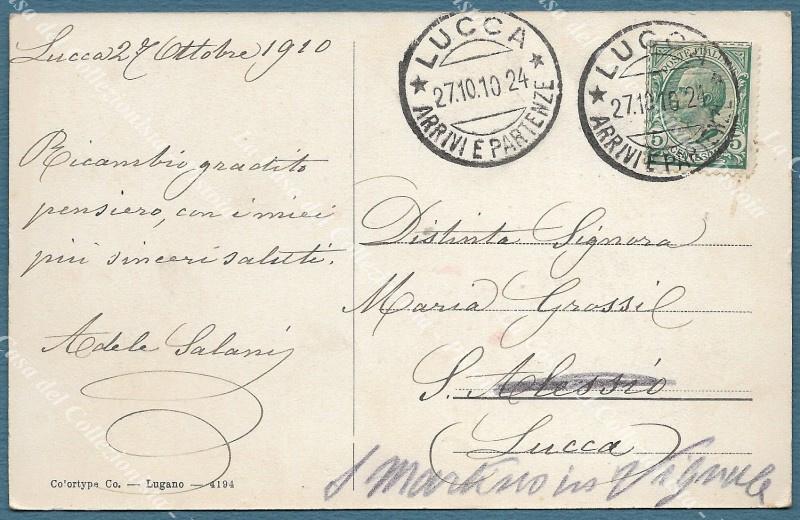 Lucca 27 Ottobre 1910
LUCCA
27.10.10 24
ARRIVI E PARTENZE
LUCCA
27.10.10 24
ARRIVI E PARTENZE
POSTE ITALIANE
5 5
Ricambio gradito
pensiero, con i miei
più sinceri saluti.
Adele Salani
Distinta Signora
Maria Grossi
S. Alessio
(Lucca)
S Martino in Vignale
Co'ortype Co. — Lugano — 4194
La Casa del Collezionista